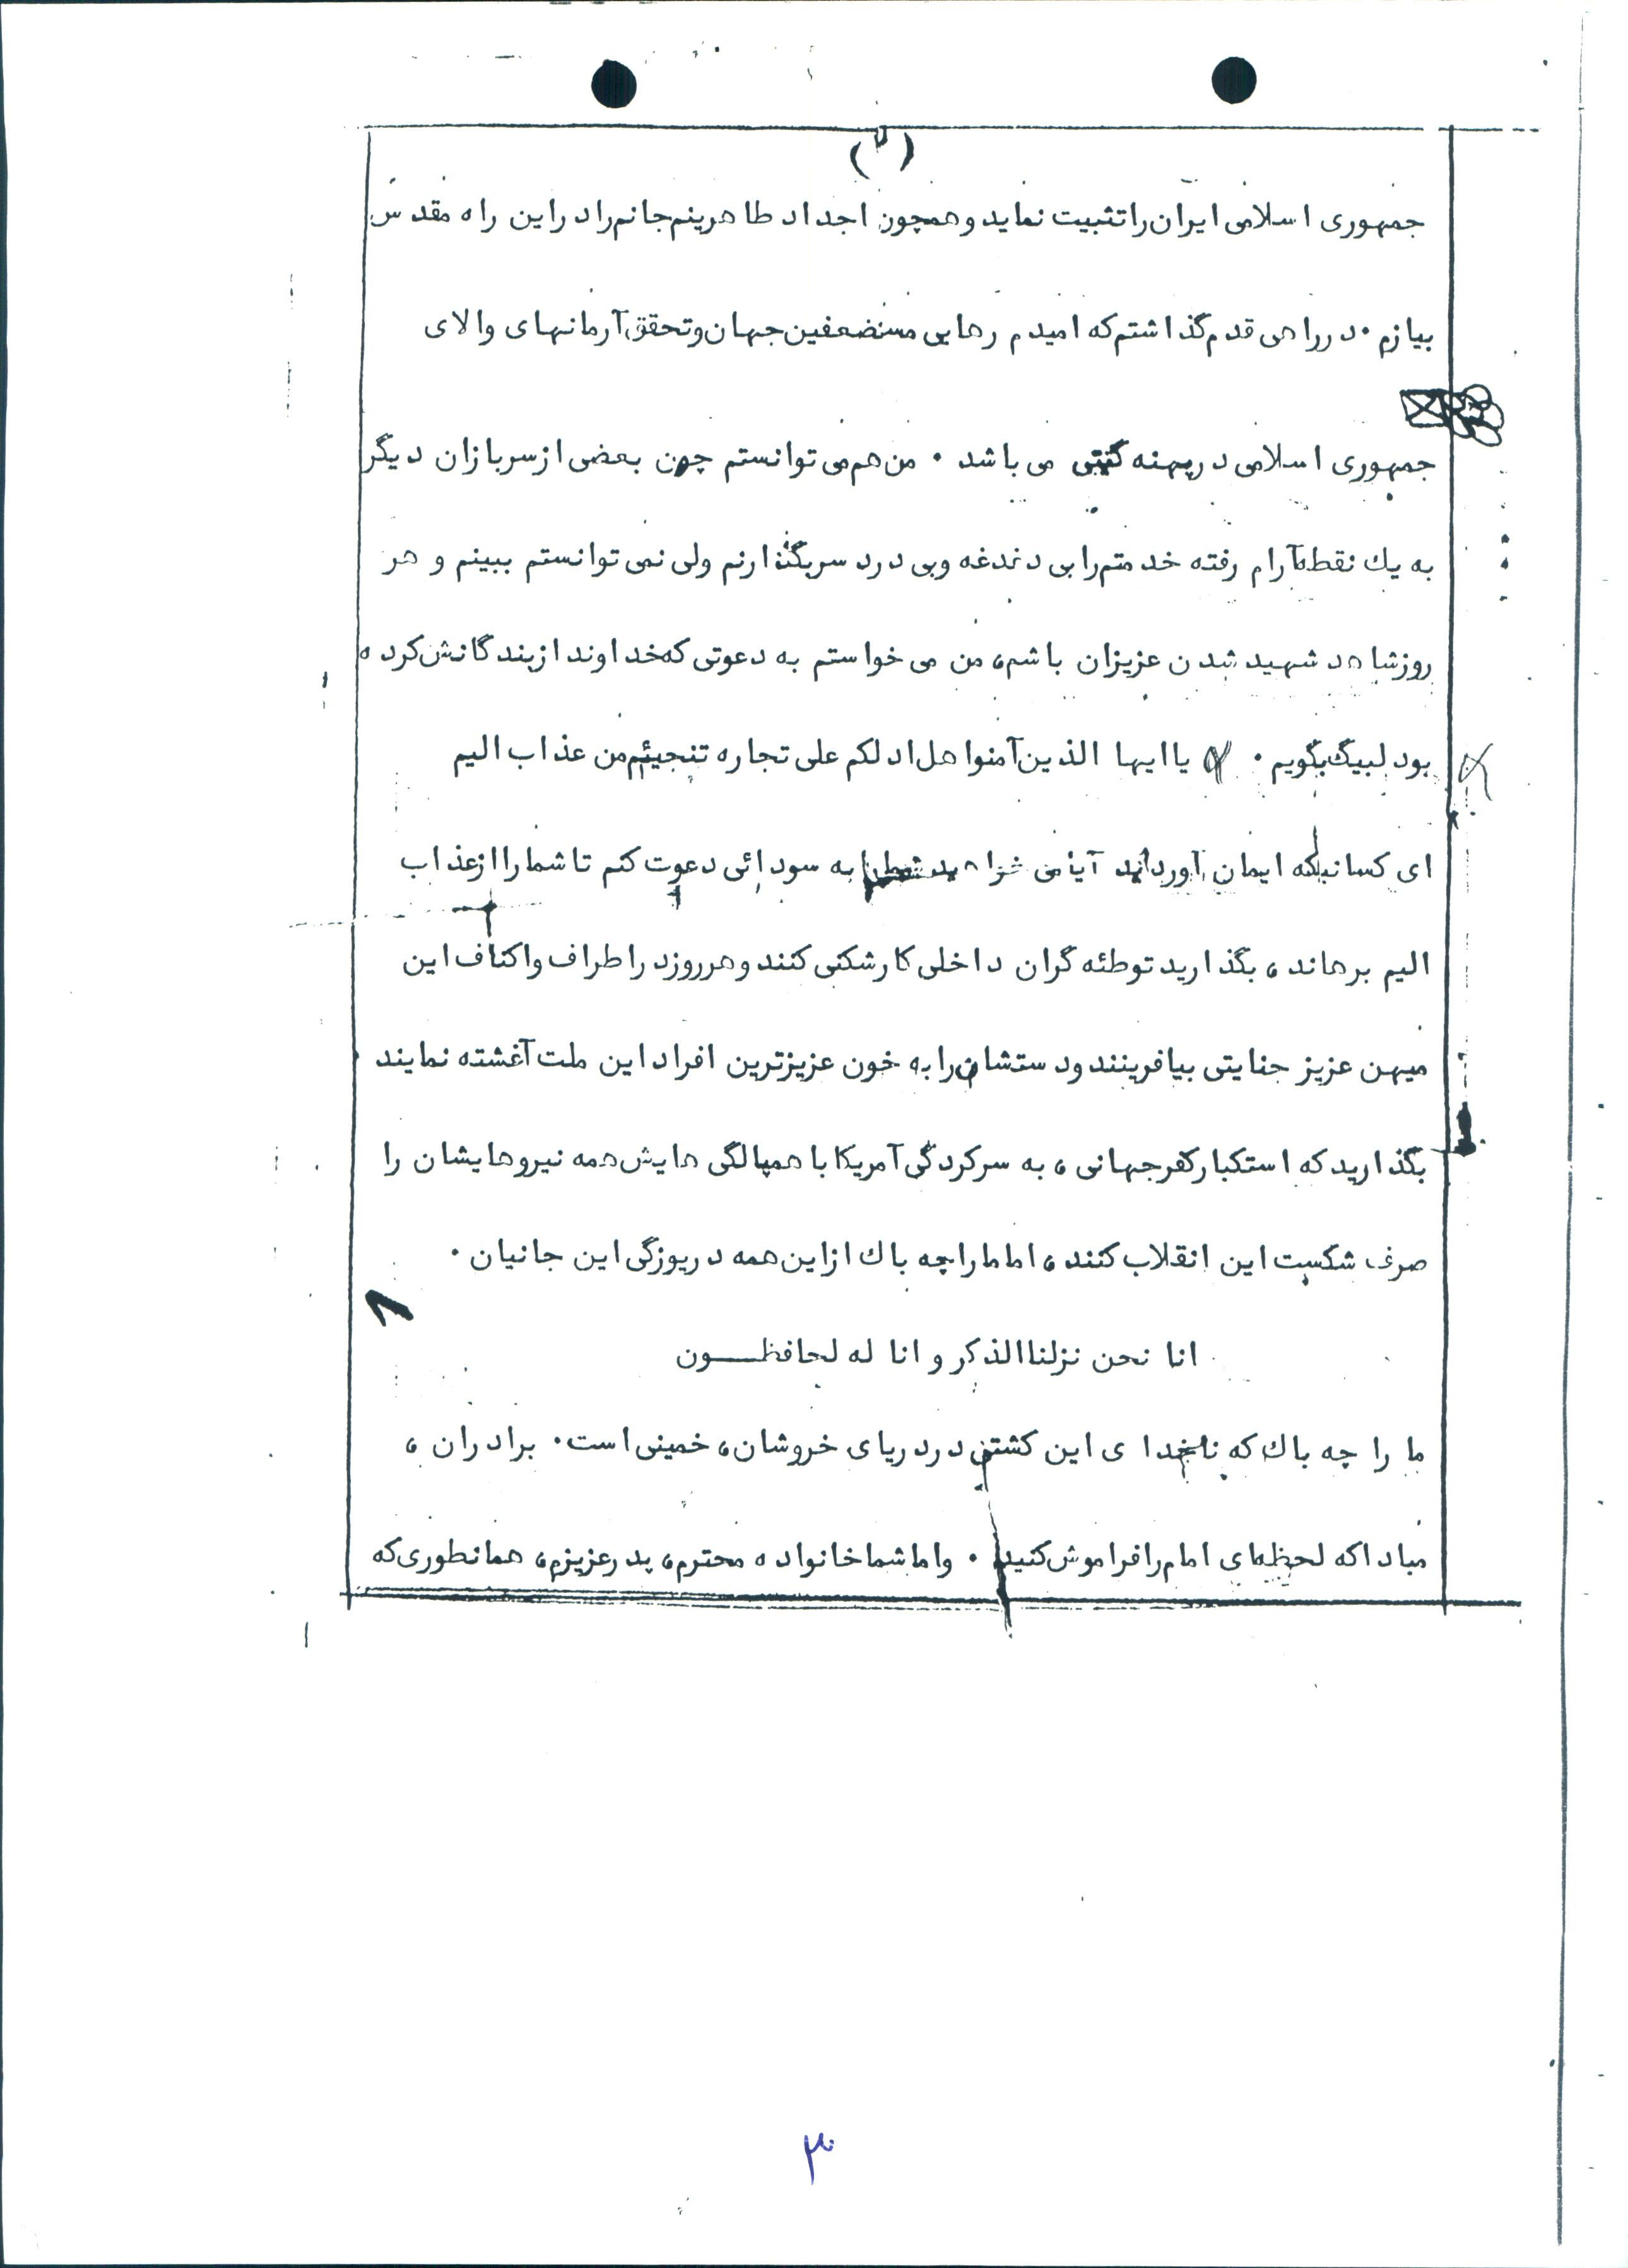 (۲)
جمهوری اسلامی ایران را تثبیت نماید و همچون اجداد طاهرینم جانم را در این راه مقدس
ببازم ۰ در راهی قدم گذاشتم که امیدم رهایی مستضعفین جهان و تحقق آرمانهای والای
جمهوری اسلامی در پهنه گیتی می باشد ۰ من هم می توانستم چون بعضی از سربازان دیگر
به یک نقطه آرام رفته خدمتم را بی دغدغه و بی درد سر بگذارنم ولی نمی توانستم ببینم و هر
روز شاهد شهید شدن عزیزان باشم، من می خواستم به دعوتی که خداوند از بندگانش کرده
بود لبیک بگویم ۰ یا ایها الذین آمنوا هل ادلکم علی تجاره تنجیکم من عذاب الیم
ای کسانیکه ایمان آورده اید آیا می خواهید شما را به سودائی دعوت کنم تا شما را از عذاب
الیم برهاند، بگذارید توطئه گران داخلی کارشکنی کنند و هر روز در اطراف و اکناف این
میهن عزیز جنایتی بیافرینند و دستشان را به خون عزیزترین افراد این ملت آغشته نمایند
بگذارید که استکبار کفر جهانی، به سرکردگی آمریکا با همپالگی هایش همه نیروهایشان را
صرف شکست این انقلاب کنند، اما ما را چه باک از این همه دریوزگی این جانیان ۰
انا نحن نزلنا الذکر و انا له لحافظـــون
ما را چه باک که ناخدای این کشتی در دریای خروشان، خمینی است۰ برادران،
مبادا که لحظه ای امام را فراموش کنید ۰ و اما شما خانواده محترم، پدر عزیزم، همانطوری که
۳